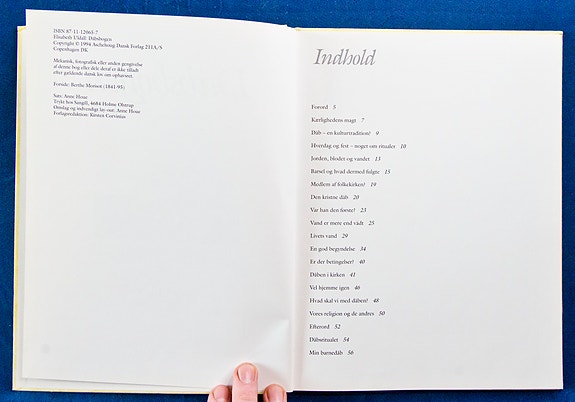 ISBN 87-11-12063-7
Elisabeth Uldall: Dåbsbogen
Copyright © 1994 Aschehoug Dansk Forlag 211A/S
Copenhagen DK
Mekanisk, fotografisk eller anden gengivelse
af denne bog eller dele deraf er ikke tilladt
efter gældende dansk lov om ophavsret.
Forside: Berthe Morisot (1841-95)
Sats: Anne Houe
Trykt hos Sangill, 4684 Holme Olstrup
Omslag og indvendigt lay-out: Anne Houe
Forlagsredaktion: Kirsten Corvinius
Indhold
Forord 5
Kærlighedens magt 7
Dåb – en kulturtradition? 9
Hverdag og fest – noget om ritualer 10
Jorden, blodet og vandet 13
Barsel og hvad dermed fulgte 15
Medlem af folkekirken? 19
Den kristne dåb 20
Var han den første? 23
Vand er mere end vådt 25
Livets vand 29
En god begyndelse 34
Er der betingelser? 40
Dåben i kirken 41
Vel hjemme igen 46
Hvad skal vi med dåben? 48
Vores religion og de andres 50
Efterord 52
Dåbsritualet 54
Min barnedåb 56